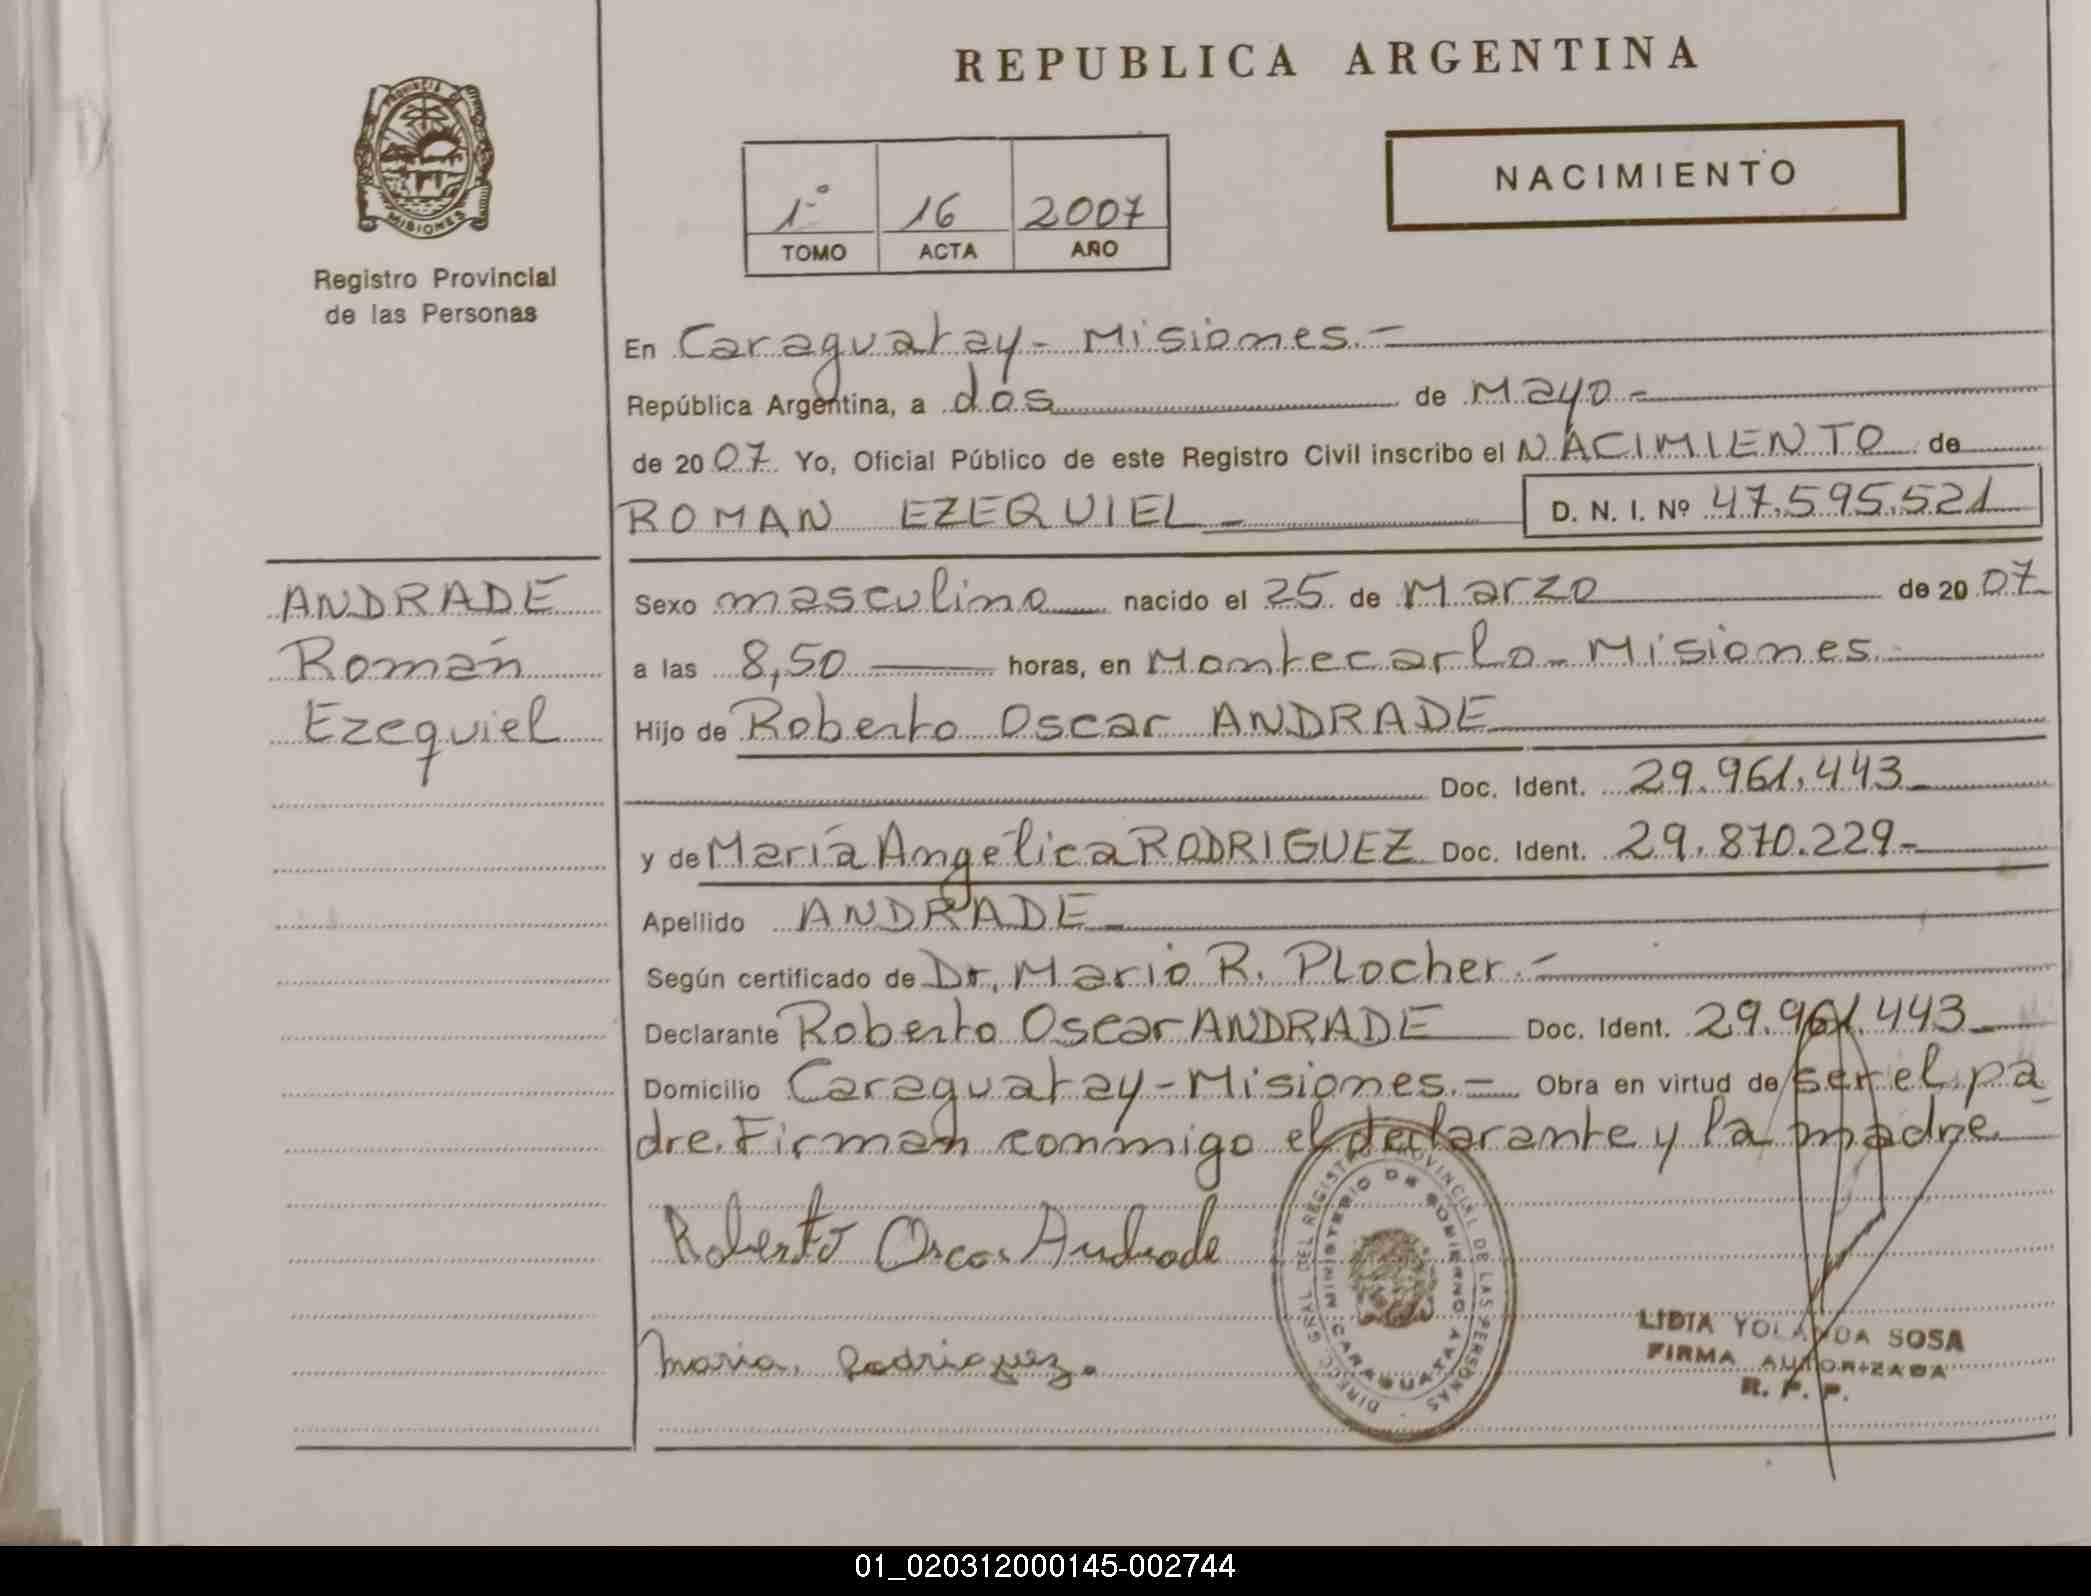 REPUBLICA ARGENTINA
PROVINCIA DE
MISIONES
Registro Provincial
de las Personas
1º 16 2007
TOMO ACTA AÑO
NACIMIENTO
En Caraguatay - Misiones. -
República Argentina, a dos de Mayo -
de 2007 Yo, Oficial Público de este Registro Civil inscribo el NACIMIENTO de
ROMAN EZEQUIEL - D. N. I. Nº 47.595.521
ANDRADE
Román
Ezequiel
Sexo masculino nacido el 25 de Marzo de 2007
a las 8,50 horas, en Montecarlo - Misiones.
Hijo de Roberto Oscar ANDRADE
Doc. Ident. 29.961.443
y de María Angélica RODRIGUEZ Doc. Ident. 29.870.229-
Apellido ANDRADE
Según certificado de Dr. Mario R. PLocher. -
Declarante Roberto Oscar ANDRADE Doc. Ident. 29.961.443
Domicilio Caraguatay - Misiones. - Obra en virtud de ser el pa
dre. Firman conmigo el declarante y la madre
Roberto Oscar Andrade
DIREC. GRAL. DEL REGISTRO PROVINCIAL DE LAS PERSONAS
MINISTERIO DE GOBIERNO
CARAGUATAY
Maria Rodriguez.
LIDIA YOLANDA SOSA
FIRMA AUTORIZADA
R. P. P.
01_020312000145-002744